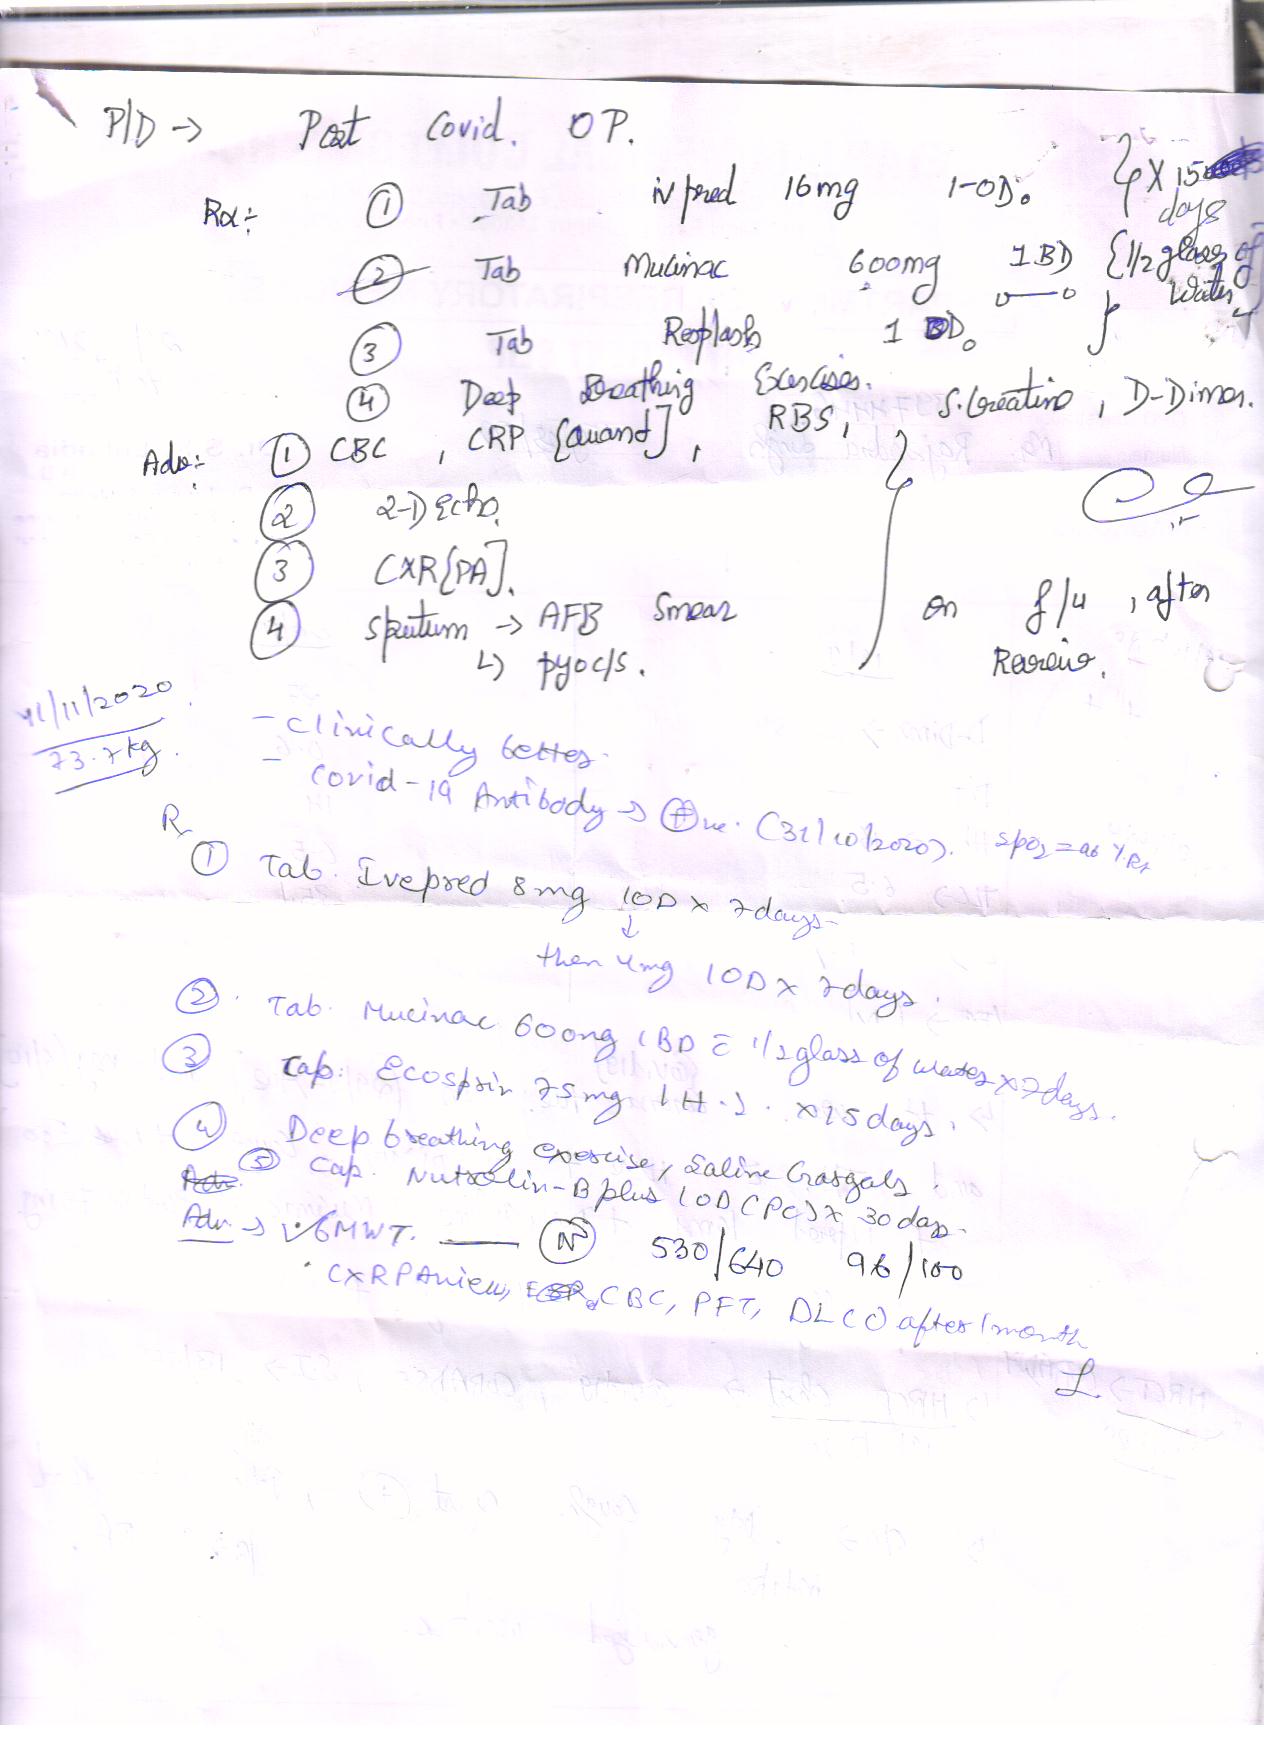 P/D → Post Covid. OP.
Rx:- ① Tab ivpred 16mg 1-OD. } X 15 days
② Tab Mucinac 600mg 1BD {1/2 glass of water
③ Tab Resplash 1 OD.
④ Deep Breathing Exercises.
Adv:- ① CBC, CRP {Quant], RBS, S.Creatine, D-Dimer.
② 2-D Echo.
③ CXR{PA].
④ Sputum → AFB Smear
↳ pyoc/s.
on f/u, after
Review.
/11/2020
73.7kg.
- Clinically better.
- Covid-19 Antibody → ⊕ve. (31/10/2020). SpO2 = 96 %
R
① Tab. Ivepred 8mg 1OD x 7days
↓
then 4mg 1OD x 7days.
② Tab. Mucinac 600mg 1BD c̄ 1/2 glass of water x 7days.
③ Tab. Ecosprin 75mg 1 H.S. x 15 days.
④ Deep breathing exercise, Saline Gargals.
⑤ Cap. Nutrolin-B plus 1OD (PC) x 30 days.
Adv. → ✓ 6MWT. —— Ⓝ 530/640 96/100
• CXR PA view, CBC, PFT, DLCO after 1 month